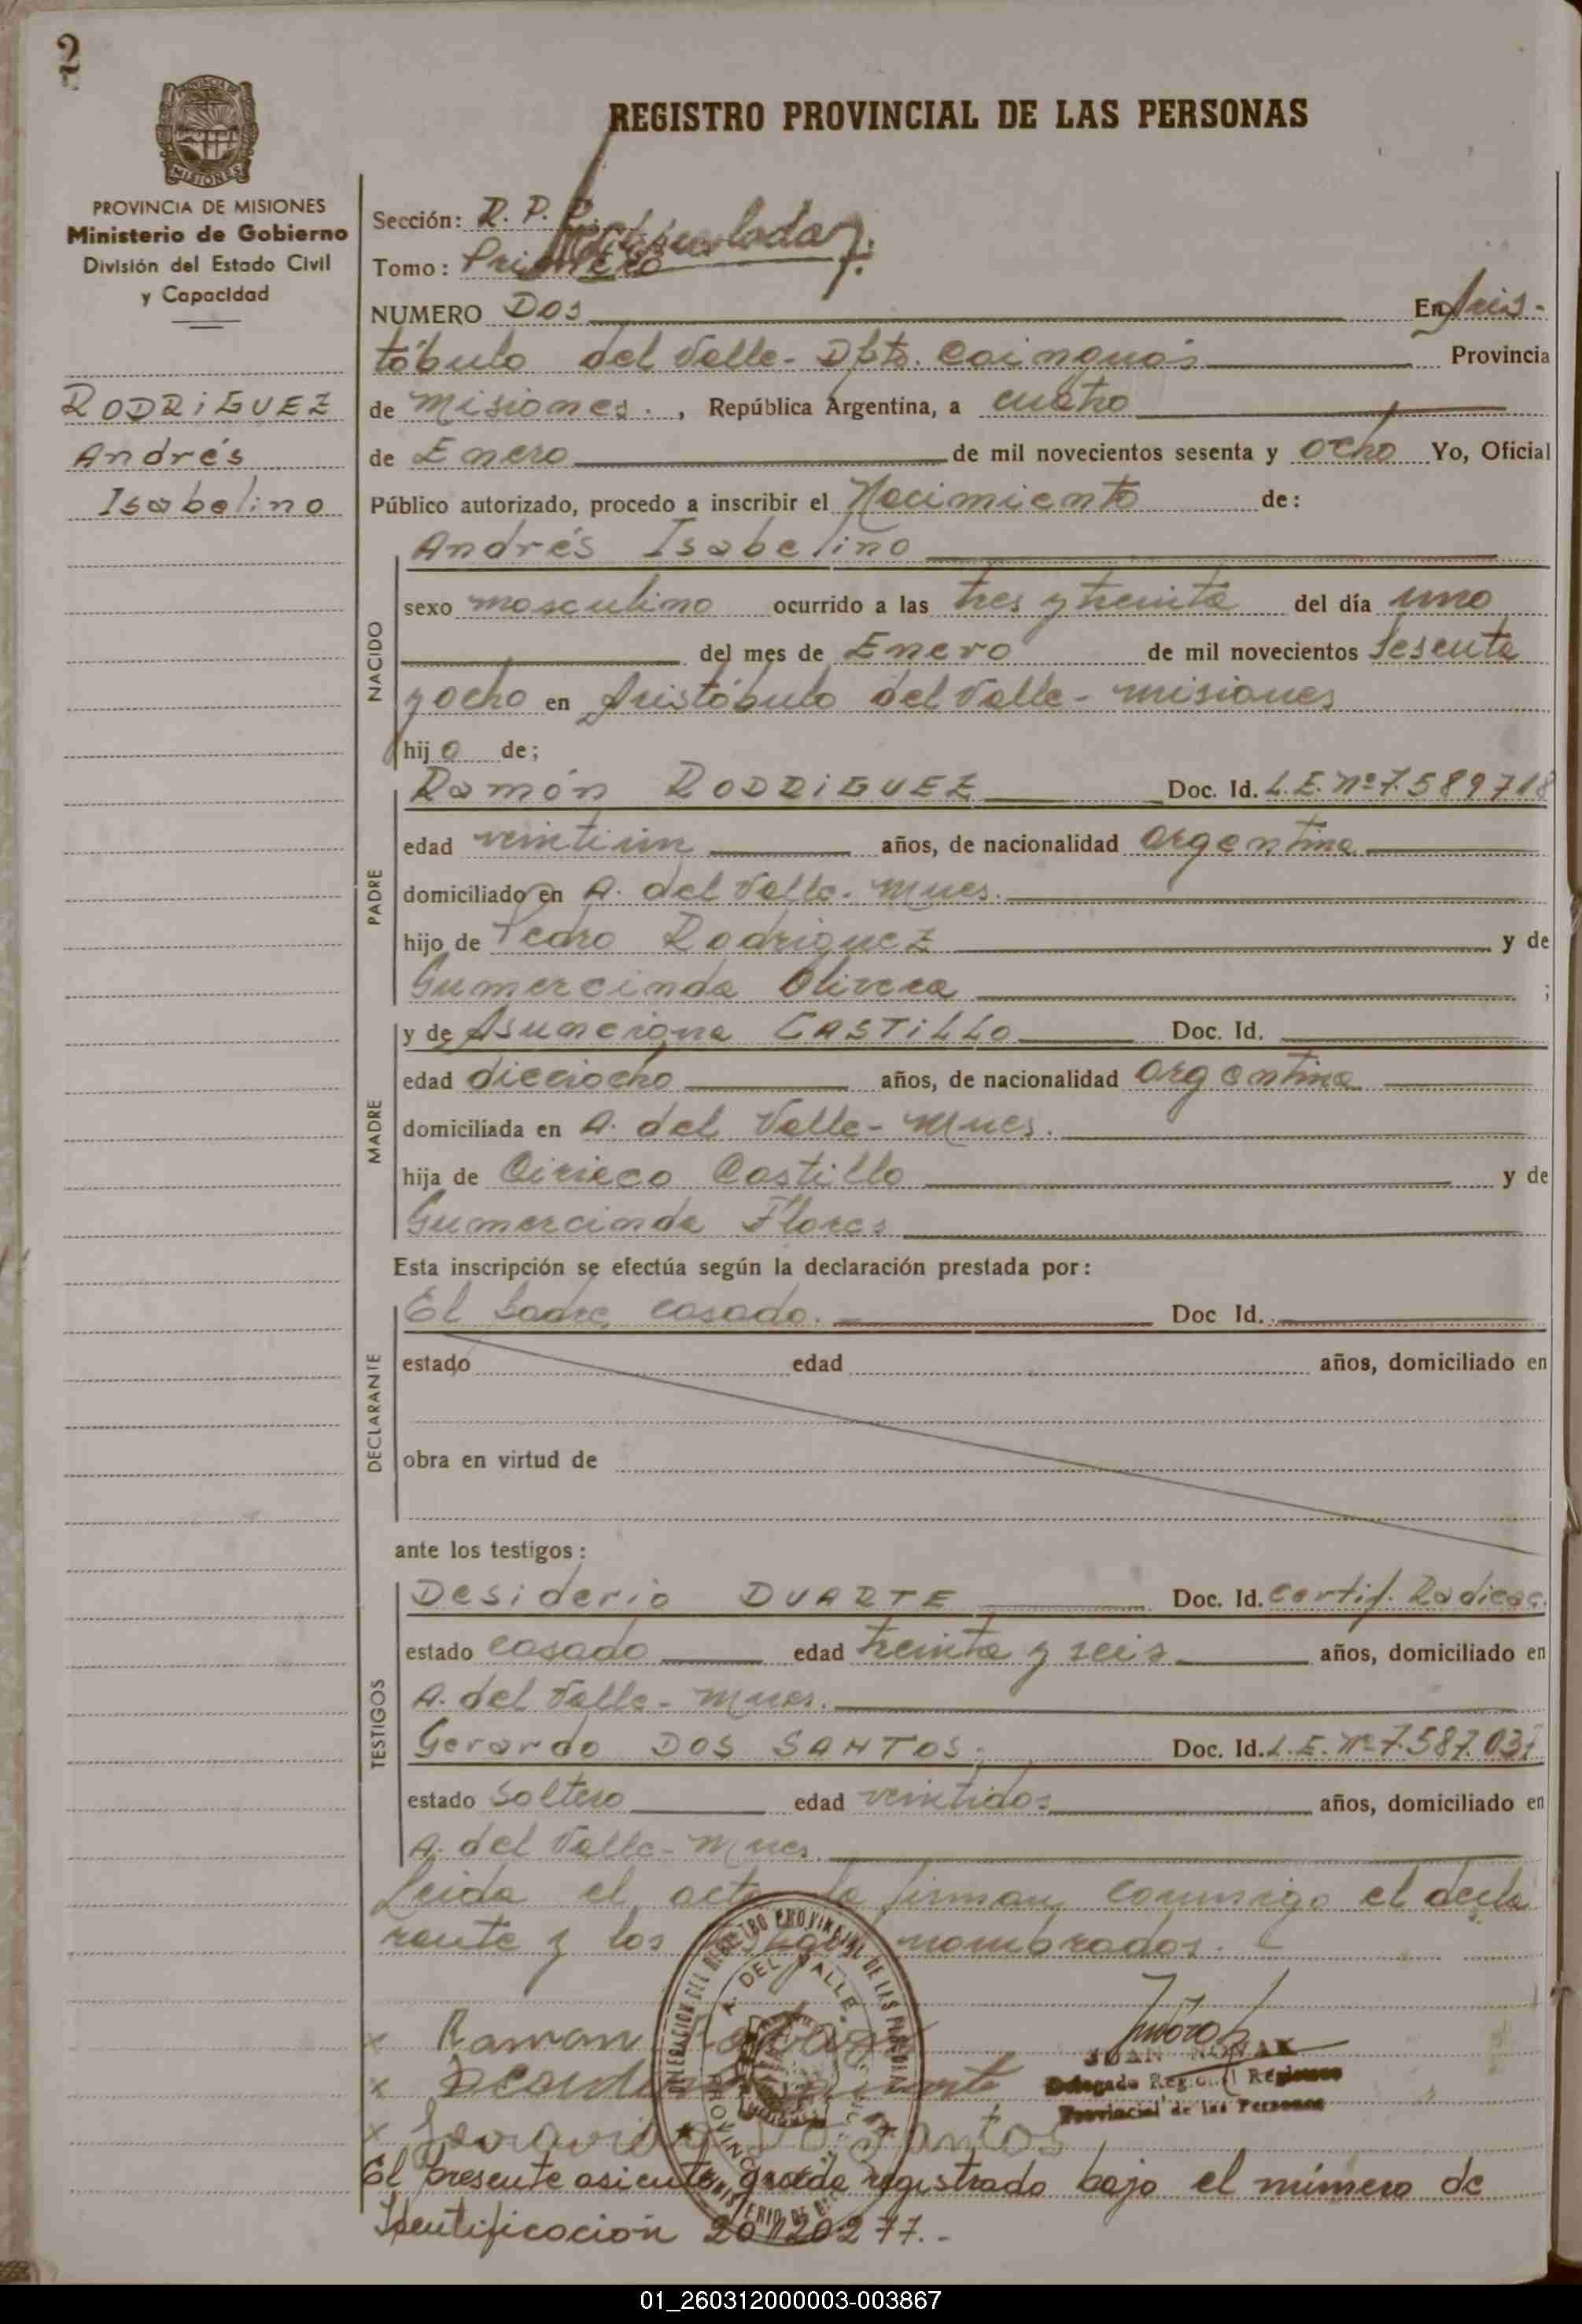 2
PROVINCIA DE MISIONES
Ministerio de Gobierno
División del Estado Civil
y Capacidad
RODRIGUEZ
Andrés
Isabelino
REGISTRO PROVINCIAL DE LAS PERSONAS
Sección: R. P. P.
Tomo: Primero
NUMERO Dos En Aris-
tóbulo del Valle- Dpto. Cainguás Provincia
de Misiones., República Argentina, a cuatro
de Enero de mil novecientos sesenta y ocho Yo, Oficial
Público autorizado, procedo a inscribir el Nacimiento de:
Andrés Isabelino
NACIDO
sexo masculino ocurrido a las tres y treinta del día uno
del mes de Enero de mil novecientos sesenta
y ocho en Aristóbulo del Valle- Misiones
hijo de;
PADRE
Ramón RODRIGUEZ Doc. Id. L.E. Nº 7.589718
edad veintiún años, de nacionalidad argentina
domiciliado en A. del Valle- Mnes.
hijo de Pedro Rodriguez y de
Gumercinda Olivera ;
MADRE
y de Asunciona CASTILLO Doc. Id.
edad dieciocho años, de nacionalidad argentina
domiciliada en A. del Valle- Mnes.
hija de Ciriaco Castillo y de
Gumercinda Flores
Esta inscripción se efectúa según la declaración prestada por:
DECLARANTE
El padre, casado. Doc Id.
estado edad años, domiciliado en
obra en virtud de
ante los testigos:
TESTIGOS
Desiderio DUARTE Doc. Id. Certif. Radicac.
estado casado edad treinta y seis años, domiciliado en
A. del Valle- Mnes.
Gerardo DOS SANTOS. Doc. Id. L.E. Nº 7.587.037
estado soltero edad veintidos años, domiciliado en
A. del Valle- Mnes.
Leída el acta la firman conmigo el decla
rante y los testigos nombrados.
DELEGACION DEL REGISTRO PROVINCIAL DE LAS PERSONAS
A. DEL VALLE
x Ramon Rodriguez
JUAN NOVAK
x Desiderio Duarte
Delegado Regional Registro
Provincial de las Personas
x Gerardo Do Santos
El presente asiento queda registrado bajo el número de
Identificación 20120277.-
01_260312000003-003867